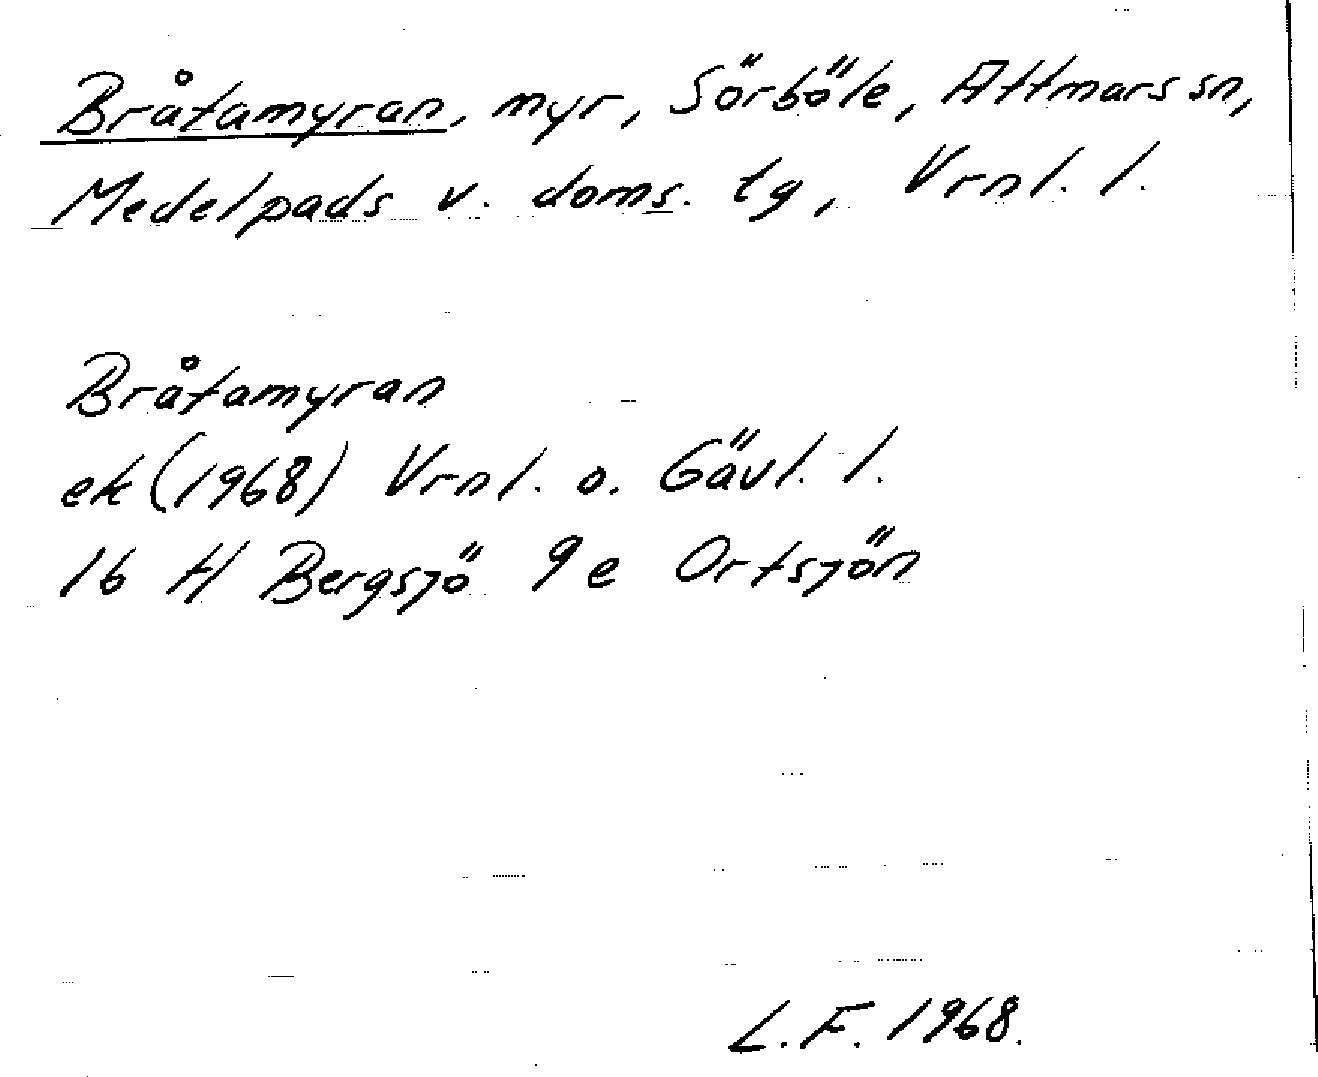 Bråtamyran, myr, Sörböle, Attmars sn,
Medelpads v. doms. tg, Vrnl. l.
Bråtamyran
ek (1968) Vrnl. o. Gävl. l.
16 H Bergsjö 9 e Ortsjön
L. F. 1968.